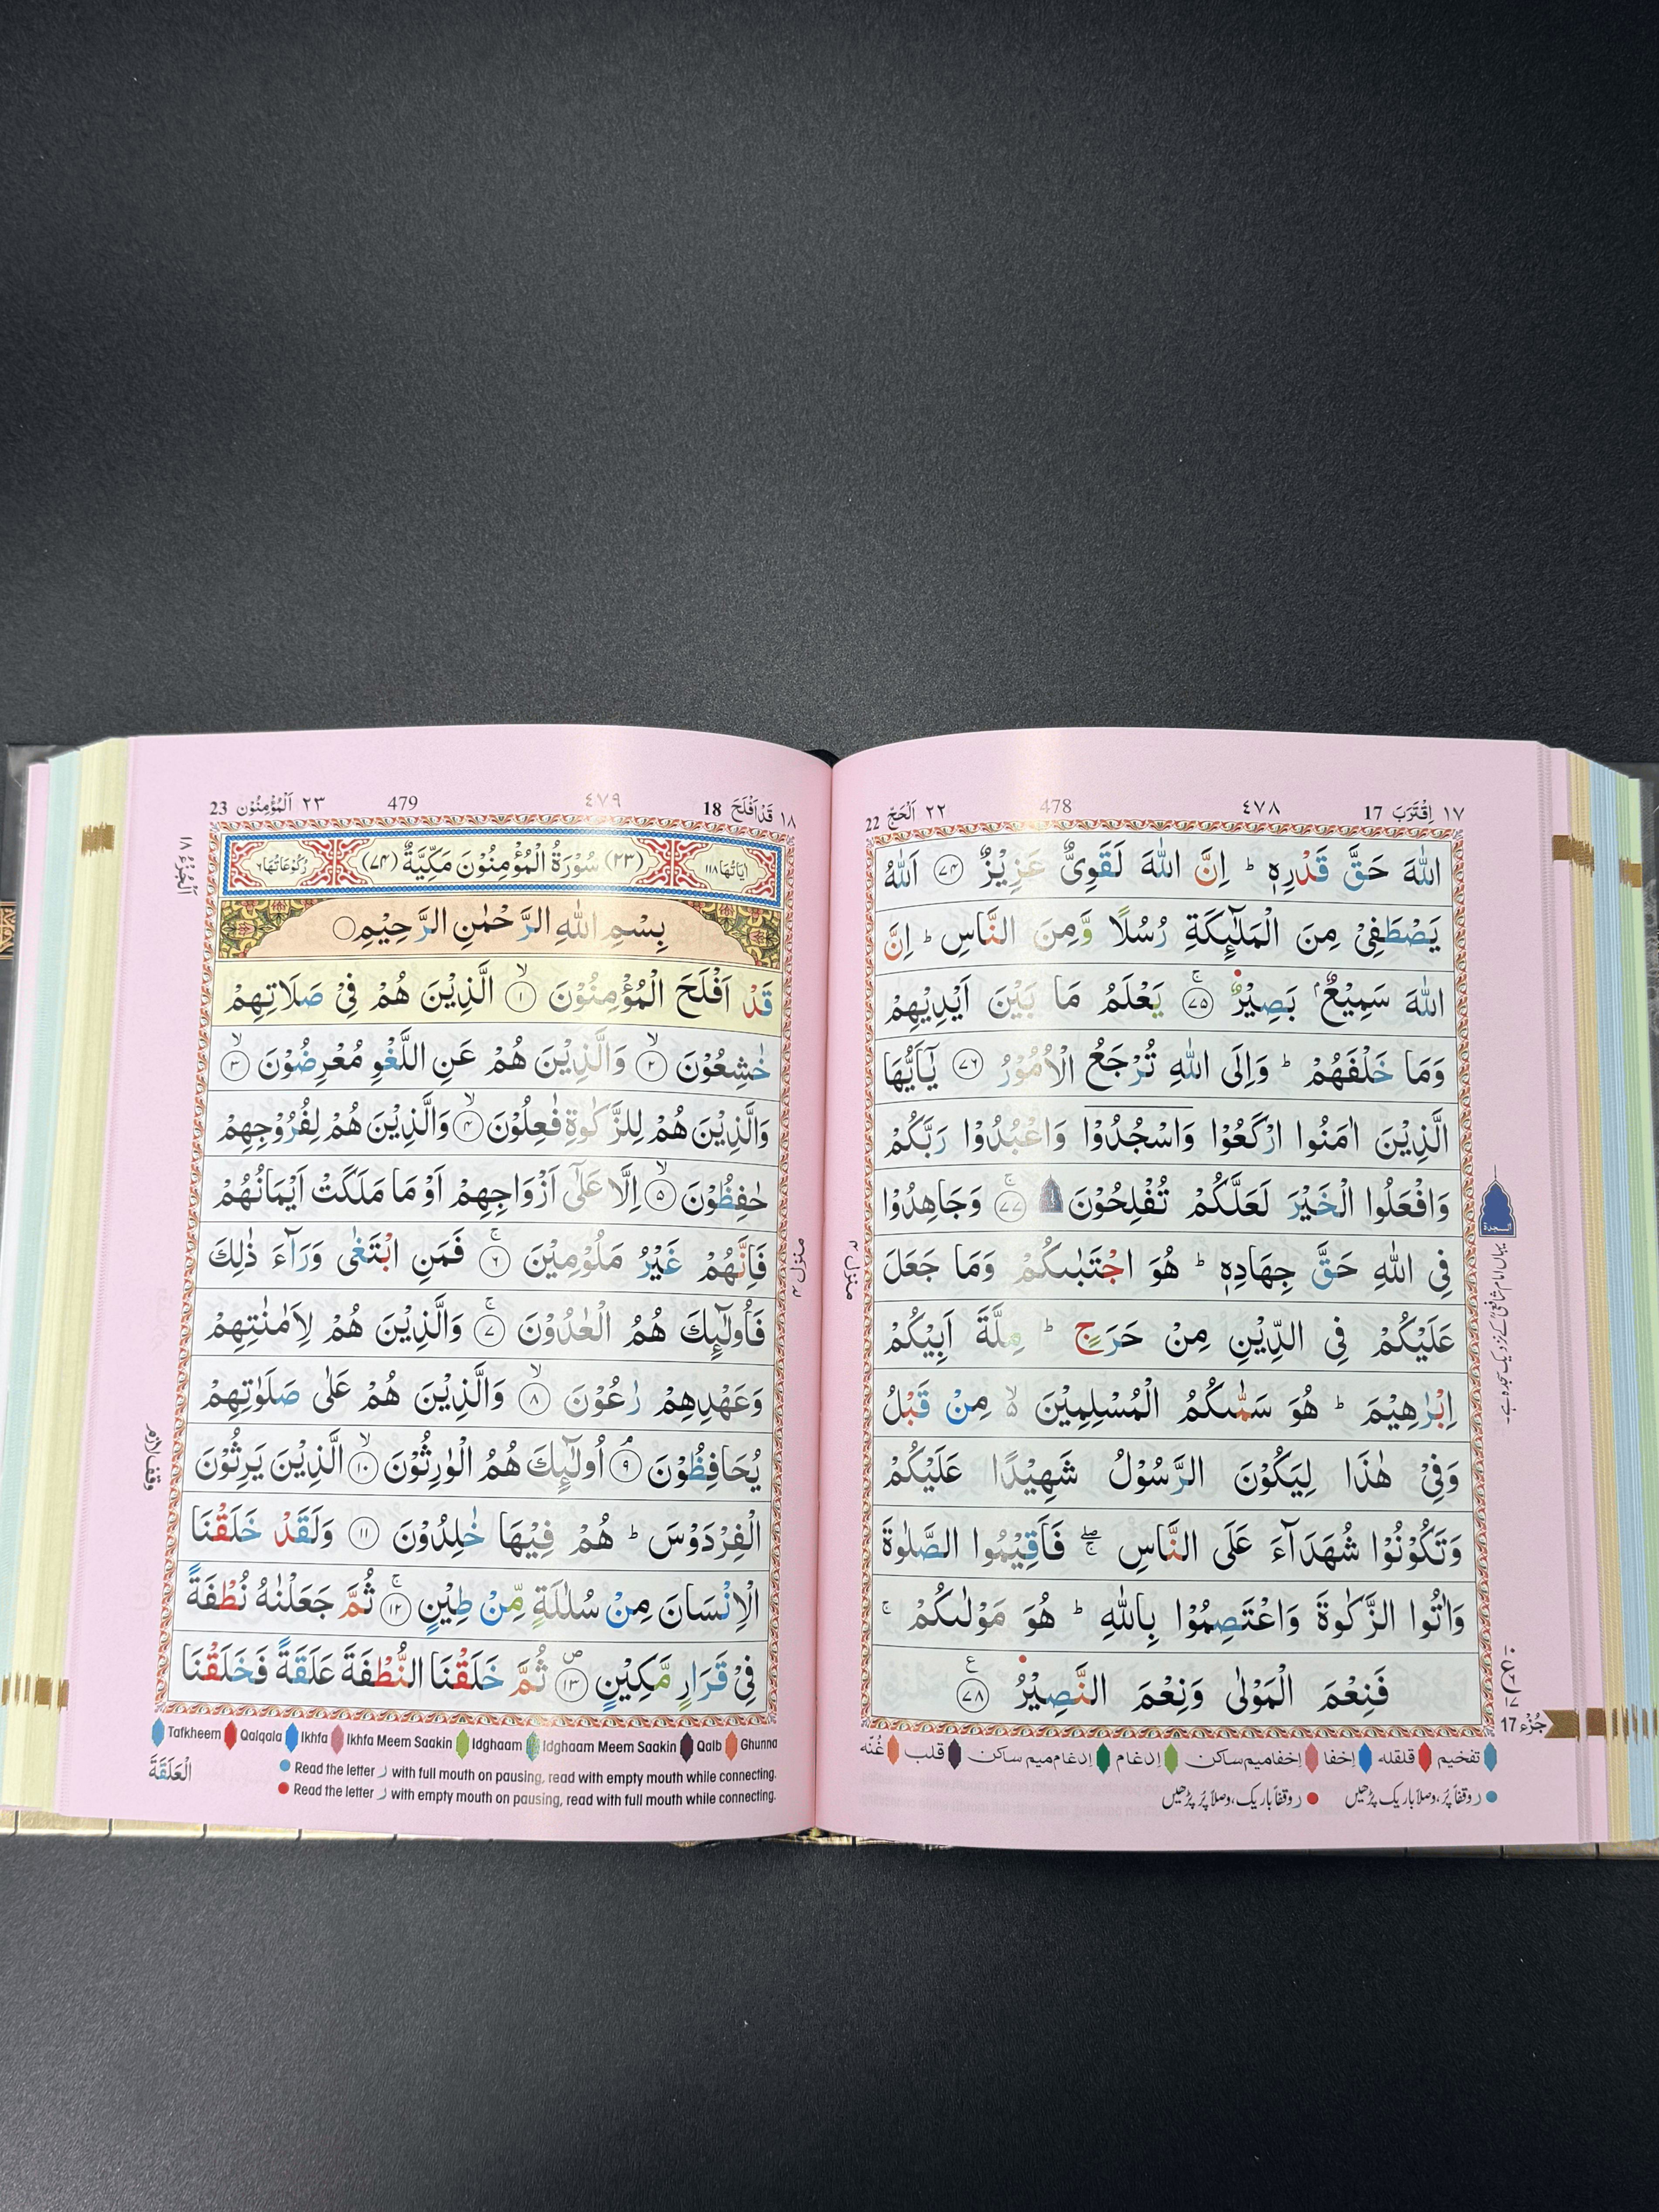 ١٧ اِقْتَرَبَ 17
٤٧٨
478
٢٢ اَلْحَجّ 22
اللّٰهَ حَقَّ قَدْرِهٖ ؕ اِنَّ اللّٰهَ لَقَوِىٌّ عَزِيْزٌ ﴿٧٤﴾ اَللّٰهُ
يَصْطَفِىْ مِنَ الْمَلٰٓئِكَةِ رُسُلًا وَّمِنَ النَّاسِ ؕ اِنَّ
اللّٰهَ سَمِيْعٌۢ بَصِيْرٌ ﴿٧٥﴾ۚ يَعْلَمُ مَا بَيْنَ اَيْدِيْهِمْ
وَمَا خَلْفَهُمْ ؕ وَاِلَى اللّٰهِ تُرْجَعُ الْاُمُوْرُ ﴿٧٦﴾ يٰۤاَيُّهَا
الَّذِيْنَ اٰمَنُوا ارْكَعُوْا وَاسْجُدُوْا وَاعْبُدُوْا رَبَّكُمْ
وَافْعَلُوا الْخَيْرَ لَعَلَّكُمْ تُفْلِحُوْنَ ﴿٧٧﴾ۚ وَجَاهِدُوْا
فِى اللّٰهِ حَقَّ جِهَادِهٖ ؕ هُوَ اجْتَبٰىكُمْ وَمَا جَعَلَ
عَلَيْكُمْ فِى الدِّيْنِ مِنْ حَرَجٍ ؕ مِلَّةَ اَبِيْكُمْ
اِبْرٰهِيْمَ ؕ هُوَ سَمّٰىكُمُ الْمُسْلِمِيْنَ ۙ مِنْ قَبْلُ
وَفِىْ هٰذَا لِيَكُوْنَ الرَّسُوْلُ شَهِيْدًا عَلَيْكُمْ
وَتَكُوْنُوْا شُهَدَآءَ عَلَى النَّاسِ ۖۚ فَاَقِيْمُوا الصَّلٰوةَ
وَاٰتُوا الزَّكٰوةَ وَاعْتَصِمُوْا بِاللّٰهِ ؕ هُوَ مَوْلٰىكُمْ ۚ
فَنِعْمَ الْمَوْلٰى وَنِعْمَ النَّصِيْرُ ﴿٧٨﴾
السجدة
یہاں امام شافعیؒ کے نزدیک سجدہ ہے۔
منزل ٤
جُزْء 17
تفخيم قلقله إخفا إخفاميم ساكن إدغام إدغام ميم ساكن قلب غُنّه
ر وقفاً پُر، وصلاً باریک پڑھیں ر وقفاً باریک، وصلاً پُر پڑھیں
١٨ قَدْ اَفْلَحَ 18
٤٧٩
479
٢٣ اَلْمُؤْمِنُوْن 23
اَلْجُزْءُ ١٨
اٰيَاتُهَا ١١٨ (٢٣) سُوْرَةُ الْمُؤْمِنُوْنَ مَكِّيَّةٌ (٧٤) رُكُوْعَاتُهَا ٦
بِسْمِ اللّٰهِ الرَّحْمٰنِ الرَّحِيْمِ
قَدْ اَفْلَحَ الْمُؤْمِنُوْنَ ﴿١﴾ۙ الَّذِيْنَ هُمْ فِىْ صَلَاتِهِمْ
خٰشِعُوْنَ ﴿٢﴾ۙ وَالَّذِيْنَ هُمْ عَنِ اللَّغْوِ مُعْرِضُوْنَ ﴿٣﴾ۙ
وَالَّذِيْنَ هُمْ لِلزَّكٰوةِ فٰعِلُوْنَ ﴿٤﴾ۙ وَالَّذِيْنَ هُمْ لِفُرُوْجِهِمْ
حٰفِظُوْنَ ﴿٥﴾ۙ اِلَّا عَلٰٓى اَزْوَاجِهِمْ اَوْ مَا مَلَكَتْ اَيْمَانُهُمْ
فَاِنَّهُمْ غَيْرُ مَلُوْمِيْنَ ﴿٦﴾ۚ فَمَنِ ابْتَغٰى وَرَآءَ ذٰلِكَ
فَاُولٰٓئِكَ هُمُ الْعٰدُوْنَ ﴿٧﴾ۚ وَالَّذِيْنَ هُمْ لِاَمٰنٰتِهِمْ
وَعَهْدِهِمْ رٰعُوْنَ ﴿٨﴾ۙ وَالَّذِيْنَ هُمْ عَلٰى صَلَوٰتِهِمْ
يُحَافِظُوْنَ ﴿٩﴾ۘ اُولٰٓئِكَ هُمُ الْوٰرِثُوْنَ ﴿١٠﴾ۙ الَّذِيْنَ يَرِثُوْنَ
الْفِرْدَوْسَ ؕ هُمْ فِيْهَا خٰلِدُوْنَ ﴿١١﴾ وَلَقَدْ خَلَقْنَا
الْاِنْسَانَ مِنْ سُلٰلَةٍ مِّنْ طِيْنٍ ﴿١٢﴾ۚ ثُمَّ جَعَلْنٰهُ نُطْفَةً
فِىْ قَرَارٍ مَّكِيْنٍ ﴿١٣﴾ ثُمَّ خَلَقْنَا النُّطْفَةَ عَلَقَةً فَخَلَقْنَا
منزل ٤
وقف لازم
Tafkheem Qalqala Ikhfa Ikhfa Meem Saakin Idghaam Idghaam Meem Saakin Qalb Ghunna
Read the letter ر with full mouth on pausing, read with empty mouth while connecting.
Read the letter ر with empty mouth on pausing, read with full mouth while connecting.
الْعَلَقَةَ